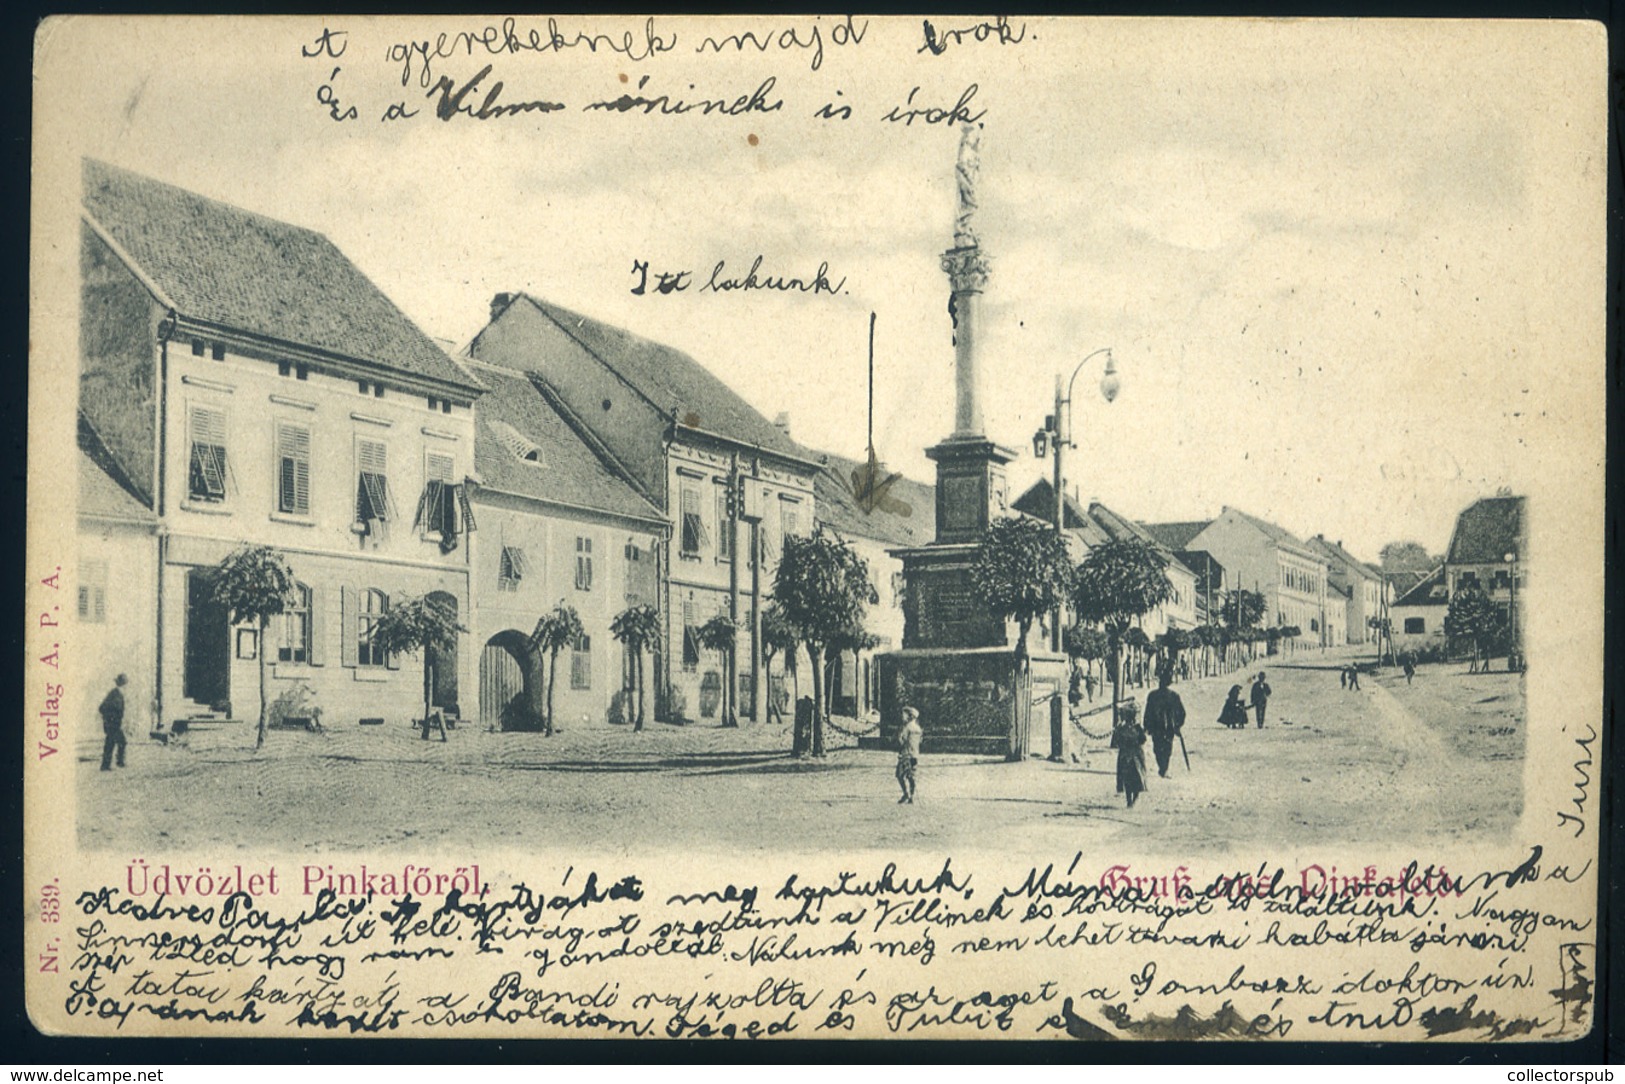 A gyerekeknek majd írok.
És a Vilma néninek is írok.
Itt lakunk.
Nr. 339. Verlag A. P. A.
Üdvözlet Pinkafőről.
Gruß aus Pinkafeld.
Kedves kártyáket meg kaptukuk, Máma sétálni voltunk a
Sinnersdorfi út felé. Virágot szedtünk a Villinek és is találtunk. Nagyon
szép tőled hogy rám is gondoltál. Nálunk még nem lehet tavaszi kabátba járni.
A tatai kártyát a Bandi rajzolta és az eget a Gombosz doktor úr.
csókoltatom. Téged és
Jusi
www.delcampe.net
collectorspub